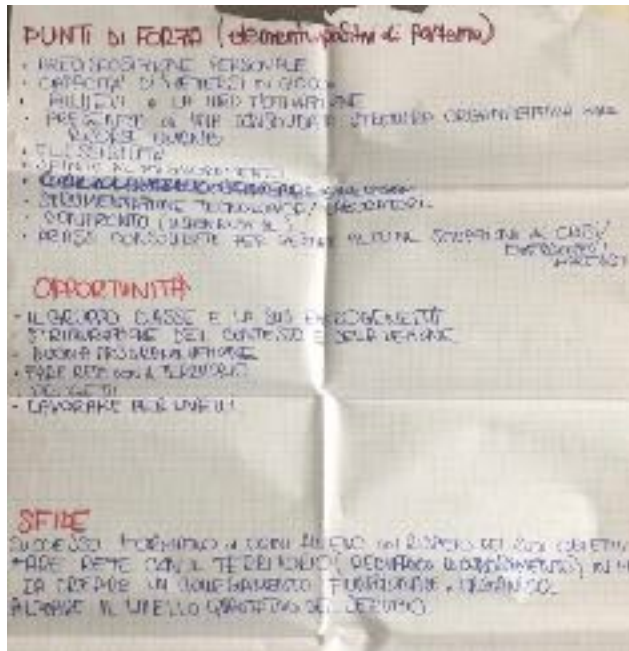 PUNTI DI FORZA (elementi positivi di partenza)
• PREDISPOSIZIONE PERSONALE
• CAPACITA' DI METTERSI IN GIOCO
• ALLIEVI e LA LORO MOTIVAZIONE
• PRESENZA DI UNA CONSOLIDATA STRUTTURA ORGANIZZATIVA
RISORSE UMANE
• FLESSIBILITÀ
• STRUMENTAZIONE TECNOLOGICA / LABORATORI
• CONFRONTO
• PRASSI CONSOLIDATE PER GESTIRE ALCUNE SITUAZIONI DI CRISI/
OPPORTUNITÀ
- IL GRUPPO CLASSE E LA SUA ETEROGENEITÀ
- STRUTTURAZIONE DEL CONTESTO E DELLA LEZIONE
- BUONA PROGRAMMAZIONE
• FARE RETE CON IL TERRITORIO
• PROGETTI
- LAVORARE PER LIVELLI
SFIDE
SUCCESSO FORMATIVO DI OGNI ALLIEVO NEL RISPETTO DEI SUOI OBIETTIVI
FARE RETE CON IL TERRITORIO (RECIPROCO) IN M
DA CREARE UN COLLEGAMENTO FUNZIONALE
ALZARE IL LIVELLO QUALITATIVO DEL SERVIZIO